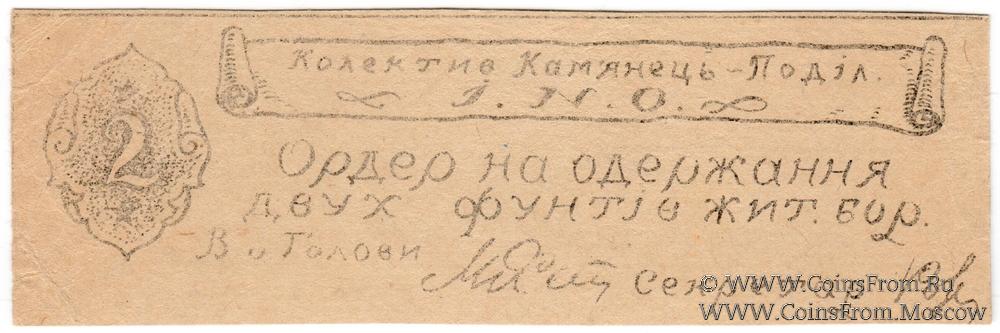 Колектив Камянець-Поділ.
І. Н. О.
2
Ордер на одержання
двух фунтів жит. бор.
В о Голови
Секретар
© www.CoinsFrom.Ru
www.CoinsFrom.Moscow